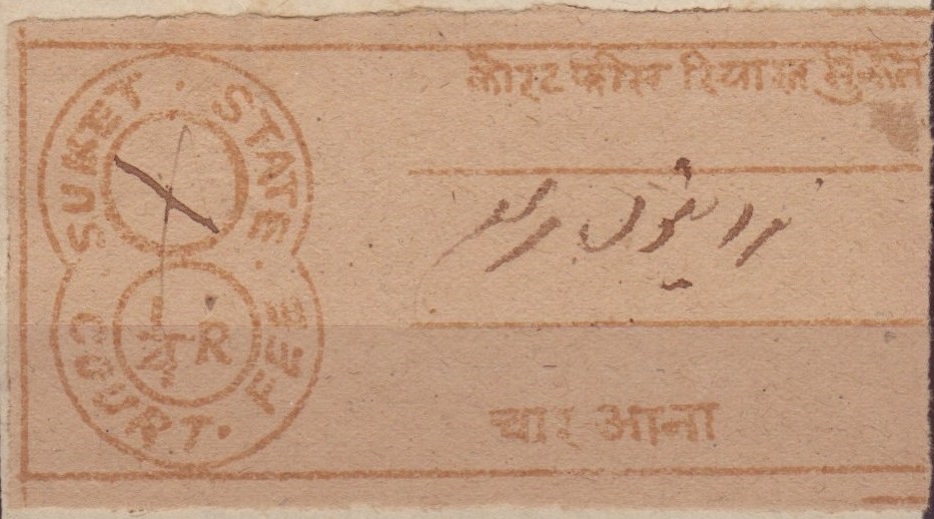 SUKET · STATE ·
COURT · FEE
1/4 R
कोरट फीस रियासत सुकेत
चार आना